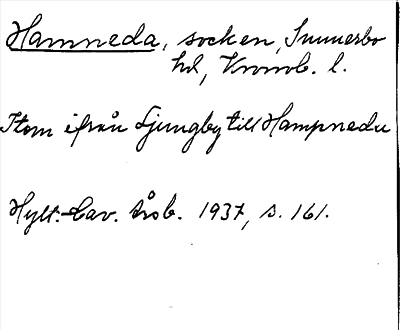 Hamneda, socken, Sunnerbo
hd, Kronob. l.
Itom ifrån Ljungby till Hampnedu
Hylt.-Cav. årsb. 1937, s. 161.